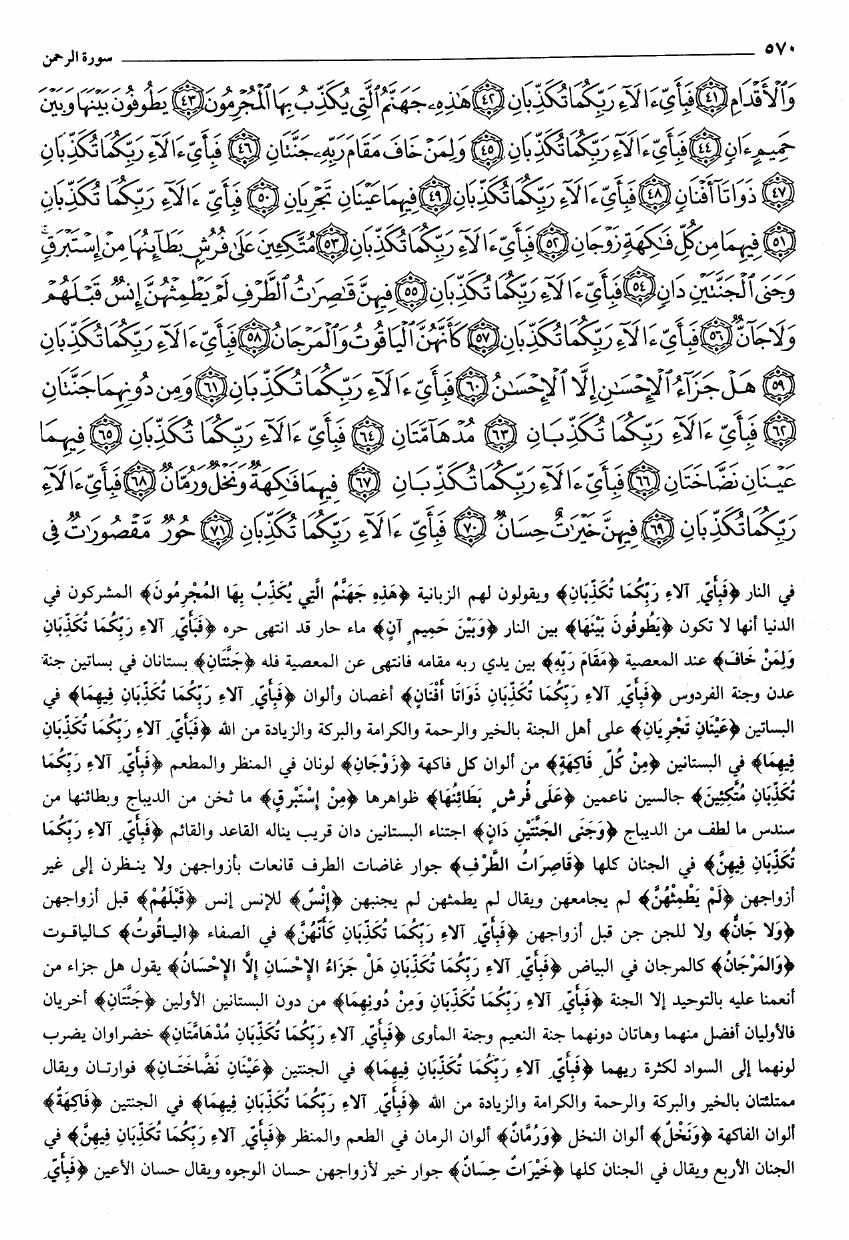 ٥٧٠ سورة الرحمن
وَٱلْأَقْدَامِ ﴿٤١﴾ فَبِأَىِّ ءَالَآءِ رَبِّكُمَا تُكَذِّبَانِ ﴿٤٢﴾ هَٰذِهِۦ جَهَنَّمُ ٱلَّتِى يُكَذِّبُ بِهَا ٱلْمُجْرِمُونَ ﴿٤٣﴾ يَطُوفُونَ بَيْنَهَا وَبَيْنَ
حَمِيمٍ ءَانٍ ﴿٤٤﴾ فَبِأَىِّ ءَالَآءِ رَبِّكُمَا تُكَذِّبَانِ ﴿٤٥﴾ وَلِمَنْ خَافَ مَقَامَ رَبِّهِۦ جَنَّتَانِ ﴿٤٦﴾ فَبِأَىِّ ءَالَآءِ رَبِّكُمَا تُكَذِّبَانِ
﴿٤٧﴾ ذَوَاتَآ أَفْنَانٍ ﴿٤٨﴾ فَبِأَىِّ ءَالَآءِ رَبِّكُمَا تُكَذِّبَانِ ﴿٤٩﴾ فِيهِمَا عَيْنَانِ تَجْرِيَانِ ﴿٥٠﴾ فَبِأَىِّ ءَالَآءِ رَبِّكُمَا تُكَذِّبَانِ
﴿٥١﴾ فِيهِمَا مِن كُلِّ فَٰكِهَةٍ زَوْجَانِ ﴿٥٢﴾ فَبِأَىِّ ءَالَآءِ رَبِّكُمَا تُكَذِّبَانِ ﴿٥٣﴾ مُتَّكِـِٔينَ عَلَىٰ فُرُشٍۭ بَطَآئِنُهَا مِنْ إِسْتَبْرَقٍ ۚ
وَجَنَى ٱلْجَنَّتَيْنِ دَانٍ ﴿٥٤﴾ فَبِأَىِّ ءَالَآءِ رَبِّكُمَا تُكَذِّبَانِ ﴿٥٥﴾ فِيهِنَّ قَٰصِرَٰتُ ٱلطَّرْفِ لَمْ يَطْمِثْهُنَّ إِنسٌ قَبْلَهُمْ
وَلَا جَآنٌّ ﴿٥٦﴾ فَبِأَىِّ ءَالَآءِ رَبِّكُمَا تُكَذِّبَانِ ﴿٥٧﴾ كَأَنَّهُنَّ ٱلْيَاقُوتُ وَٱلْمَرْجَانُ ﴿٥٨﴾ فَبِأَىِّ ءَالَآءِ رَبِّكُمَا تُكَذِّبَانِ
﴿٥٩﴾ هَلْ جَزَآءُ ٱلْإِحْسَٰنِ إِلَّا ٱلْإِحْسَٰنُ ﴿٦٠﴾ فَبِأَىِّ ءَالَآءِ رَبِّكُمَا تُكَذِّبَانِ ﴿٦١﴾ وَمِن دُونِهِمَا جَنَّتَانِ
﴿٦٢﴾ فَبِأَىِّ ءَالَآءِ رَبِّكُمَا تُكَذِّبَانِ ﴿٦٣﴾ مُدْهَآمَّتَانِ ﴿٦٤﴾ فَبِأَىِّ ءَالَآءِ رَبِّكُمَا تُكَذِّبَانِ ﴿٦٥﴾ فِيهِمَا
عَيْنَانِ نَضَّاخَتَانِ ﴿٦٦﴾ فَبِأَىِّ ءَالَآءِ رَبِّكُمَا تُكَذِّبَانِ ﴿٦٧﴾ فِيهِمَا فَٰكِهَةٌ وَنَخْلٌ وَرُمَّانٌ ﴿٦٨﴾ فَبِأَىِّ ءَالَآءِ
رَبِّكُمَا تُكَذِّبَانِ ﴿٦٩﴾ فِيهِنَّ خَيْرَٰتٌ حِسَانٌ ﴿٧٠﴾ فَبِأَىِّ ءَالَآءِ رَبِّكُمَا تُكَذِّبَانِ ﴿٧١﴾ حُورٌ مَّقْصُورَٰتٌ فِى
في النار ﴿فَبِأَيِّ آلاءِ رَبِّكُمَا تُكَذِّبَانِ﴾ ويقولون لهم الزبانية ﴿هَذِهِ جَهَنَّمُ الَّتِي يُكَذِّبُ بِهَا المُجْرِمُونَ﴾ المشركون في
الدنيا أنها لا تكون ﴿يَطُوفُونَ بَيْنَهَا﴾ بين النار ﴿وَبَيْنَ حَمِيمٍ آنٍ﴾ ماء حار قد انتهى حره ﴿فَبِأَيِّ آلاءِ رَبِّكُمَا تُكَذِّبَانِ
وَلِمَنْ خَافَ﴾ عند المعصية ﴿مَقَامَ رَبِّهِ﴾ بين يدي ربه مقامه فانتهى عن المعصية فله ﴿جَنَّتَانِ﴾ بستانان في بساتين جنة
عدن وجنة الفردوس ﴿فَبِأَيِّ آلاءِ رَبِّكُمَا تُكَذِّبَانِ ذَوَاتَا أَفْنَانٍ﴾ أغصان وألوان ﴿فَبِأَيِّ آلاءِ رَبِّكُمَا تُكَذِّبَانِ فِيهِمَا﴾ في
البساتين ﴿عَيْنَانِ تَجْرِيَانِ﴾ على أهل الجنة بالخير والرحمة والكرامة والبركة والزيادة من الله ﴿فَبِأَيِّ آلاءِ رَبِّكُمَا تُكَذِّبَانِ
فِيهِمَا﴾ في البستانين ﴿مِنْ كُلِّ فَاكِهَةٍ﴾ من ألوان كل فاكهة ﴿زَوْجَانِ﴾ لونان في المنظر والمطعم ﴿فَبِأَيِّ آلاءِ رَبِّكُمَا
تُكَذِّبَانِ مُتَّكِئِينَ﴾ جالسين ناعمين ﴿عَلَى فُرُشٍ بَطَائِنُهَا﴾ ظواهرها ﴿مِنْ إِسْتَبْرَقٍ﴾ ما ثخن من الديباج وبطائنها من
سندس ما لطف من الديباج ﴿وَجَنَى الجَنَّتَيْنِ دَانٍ﴾ اجتناء البستانين دان قريب يناله القاعد والقائم ﴿فَبِأَيِّ آلاءِ رَبِّكُمَا
تُكَذِّبَانِ فِيهِنَّ﴾ في الجنان كلها ﴿قَاصِرَاتُ الطَّرْفِ﴾ جوار غاضات الطرف قانعات بأزواجهن ولا ينظرن إلى غير
أزواجهن ﴿لَمْ يَطْمِثْهُنَّ﴾ لم يجامعهن ويقال لم يطمثهن لم يجنبهن ﴿إِنْسٌ﴾ للإنس إنس ﴿قَبْلَهُمْ﴾ قبل أزواجهن
﴿وَلا جَانٌّ﴾ ولا للجن جن قبل أزواجهن ﴿فَبِأَيِّ آلاءِ رَبِّكُمَا تُكَذِّبَانِ كَأَنَّهُنَّ﴾ في الصفاء ﴿اليَاقُوتُ﴾ كالياقوت
﴿وَالمَرْجَانُ﴾ كالمرجان في البياض ﴿فَبِأَيِّ آلاءِ رَبِّكُمَا تُكَذِّبَانِ هَلْ جَزَاءُ الإِحْسَانِ إِلاَّ الإِحْسَانُ﴾ يقول هل جزاء من
أنعمنا عليه بالتوحيد إلا الجنة ﴿فَبِأَيِّ آلاءِ رَبِّكُمَا تُكَذِّبَانِ وَمِنْ دُونِهِمَا﴾ من دون البستانين الأولين ﴿جَنَّتَانِ﴾ أخريان
فالأوليان أفضل منهما وهاتان دونهما جنة النعيم وجنة المأوى ﴿فَبِأَيِّ آلاءِ رَبِّكُمَا تُكَذِّبَانِ مُدْهَامَّتَانِ﴾ خضراوان يضرب
لونهما إلى السواد لكثرة ريهما ﴿فَبِأَيِّ آلاءِ رَبِّكُمَا تُكَذِّبَانِ فِيهِمَا﴾ في الجنتين ﴿عَيْنَانِ نَضَّاخَتَانِ﴾ فوارتان ويقال
ممتلئتان بالخير والبركة والرحمة والكرامة والزيادة من الله ﴿فَبِأَيِّ آلاءِ رَبِّكُمَا تُكَذِّبَانِ فِيهِمَا﴾ في الجنتين ﴿فَاكِهَةٌ﴾
ألوان الفاكهة ﴿وَنَخْلٌ﴾ ألوان النخل ﴿وَرُمَّانٌ﴾ ألوان الرمان في الطعم والمنظر ﴿فَبِأَيِّ آلاءِ رَبِّكُمَا تُكَذِّبَانِ فِيهِنَّ﴾ في
الجنان الأربع ويقال في الجنان كلها ﴿خَيْرَاتٌ حِسَانٌ﴾ جوار خير لأزواجهن حسان الوجوه ويقال حسان الأعين ﴿فَبِأَيِّ